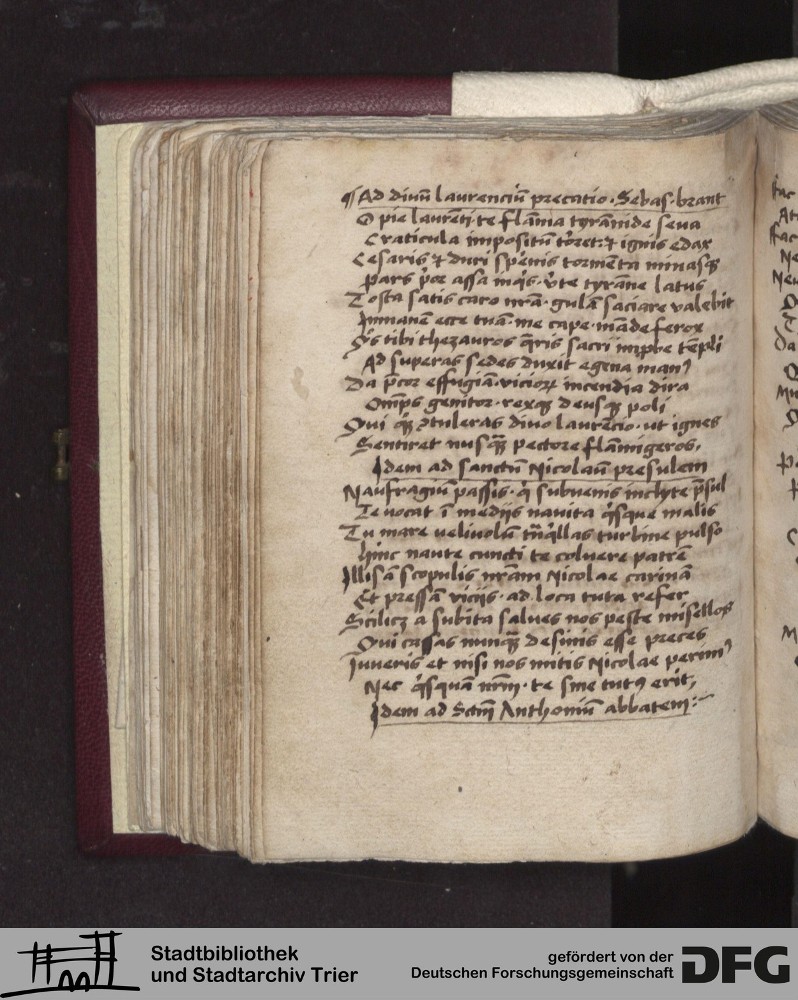 ¶Ad diuū laurenciū precatio. Sebas. brant
O pie laurēti te flāma tyrānide seua
Craticula impositū tōret: & ignis edax
Cesaris & duri spernis tormēta minasqȝ
pars assa tyrāne latus
Tosta satis caro nrā. gulā saciare valebit
Inmanē ecce tuā. me cape. māde ferox
tibi thezauros q̄ris sacri impbe tēpli
Ad superas sedes duxit egena man⁹
Da p̄cor effugiā. vicioꝝ incendia dira
Omīps genitor. rexqȝ deusqȝ poli
Qui ꝯtuleras diuo laurēcio. ut ignes
Sentiret nusqȝ pectore flāmigeros.
Idem ad sanctū Nicolaū presulem
Naufragiū passis. q̇ subuenis inclyte p̄sul
Te vocat ī mediis nauita q̇sque malis
Tu mare veliuolū turbine pulso
hinc naute cuncti te coluere patrē
Illisā scopulis nrām Nicolae carinā
Et pressā viciis. ad loca tuta refer
Scilicȝ a subita salues nos peste misellos
Qui cassas nunqȝ desinis esse preces
Iuueris et nisi nos mitis Nicolae perim⁹
Nec q̇squā nrm̄. te sine tut⁹ erit,
Idem ad Sctm̄ Anthoniū abbatem:~
Stadtbibliothek
und Stadtarchiv Trier
gefördert von der
Deutschen Forschungsgemeinschaft
DFG